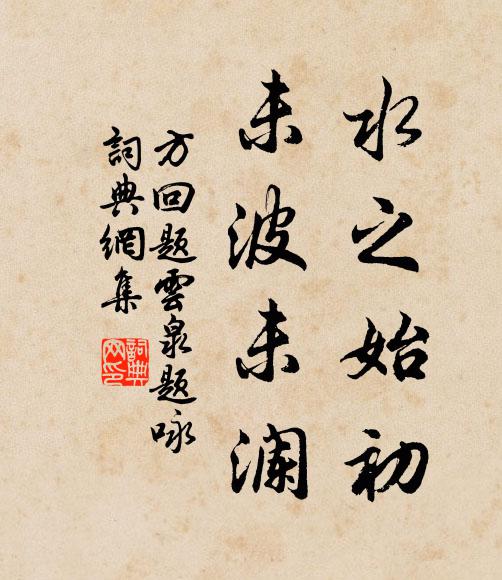 水之始初
未波未澜
方回题雲泉题咏
詞典網集
詞典网印